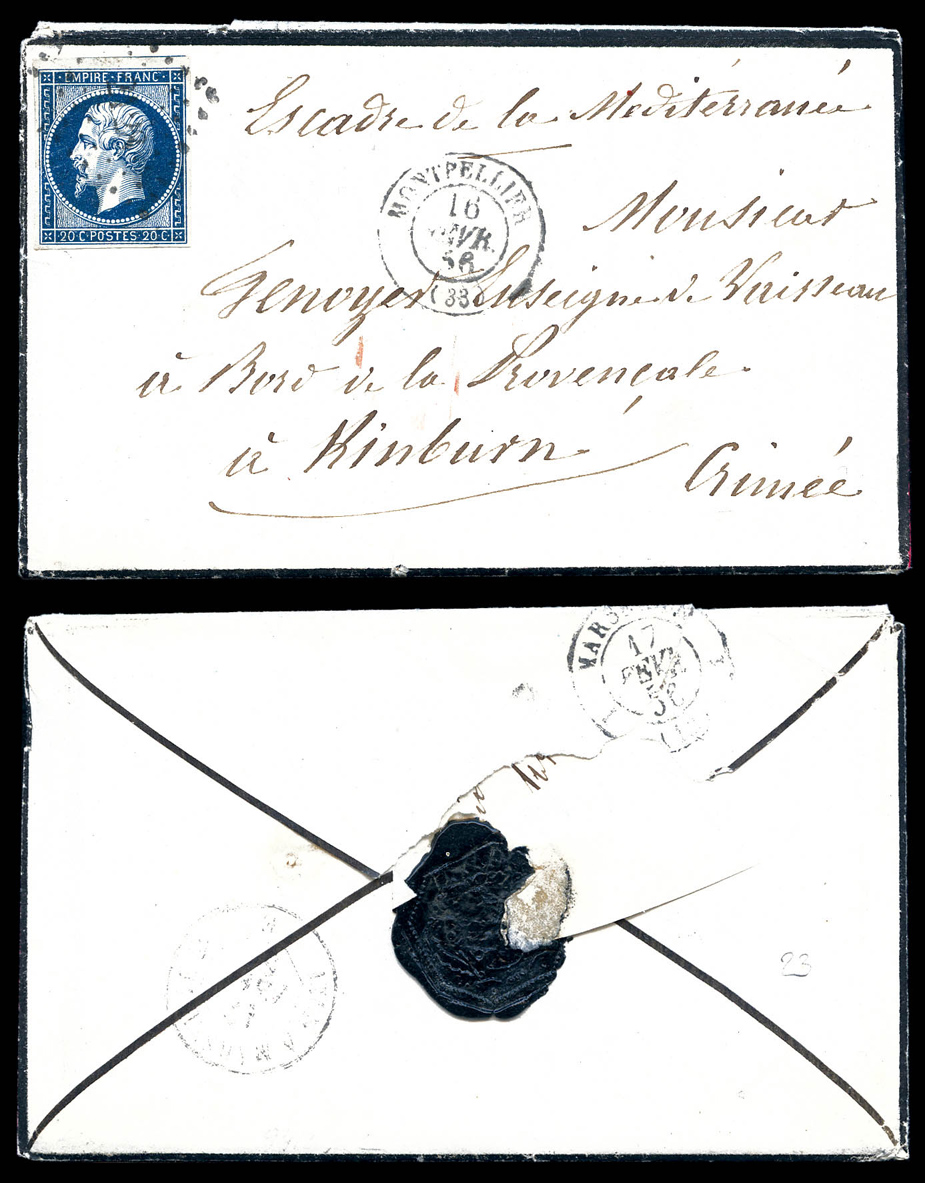 EMPIRE · FRANC ·
20 C · POSTES · 20 C ·
Escadre de la Mediterranée
MONTPELLIER
16
56
(33)
Monsieur
Genoyer Enseigne de Vaisseau
à Bord de la Provençale
à Kinburn
Crimée
MARS
17
FEVR
56
23